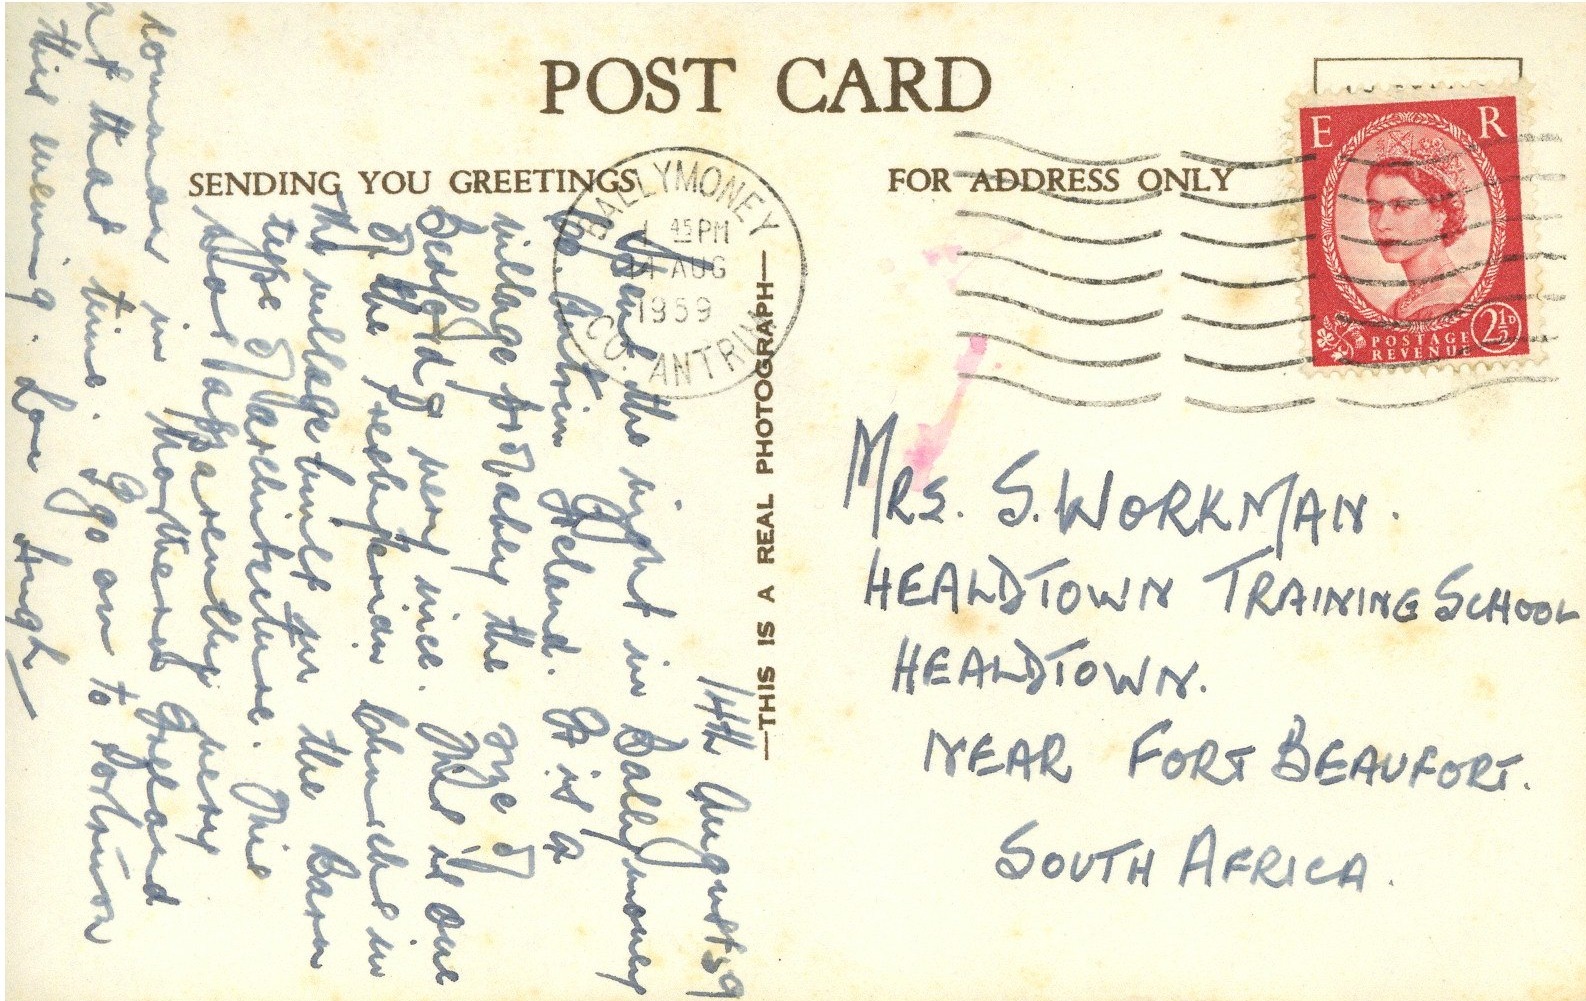 POST CARD
SENDING YOU GREETINGS
FOR ADDRESS ONLY
BALLYMONEY
1 45PM
14 AUG
1959
CO. ANTRIM
E R
POSTAGE
REVENUE
2½D
—THIS IS A REAL PHOTOGRAPH—
14th August 59
Spent the night in Ballymoney
Co. Antrim Ireland. It is a
village probably the size of
Bedford, very nice. This is one
of the Presbyterian Churches in
the village built the Barn
type of architecture. This
was apparently very
common in Northern Ireland
at that time. I go on to
this evening. Love Hugh
MRS. S. WORKMAN.
HEALDTOWN TRAINING SCHOOL
HEALDTOWN.
NEAR FORT BEAUFORT.
SOUTH AFRICA.